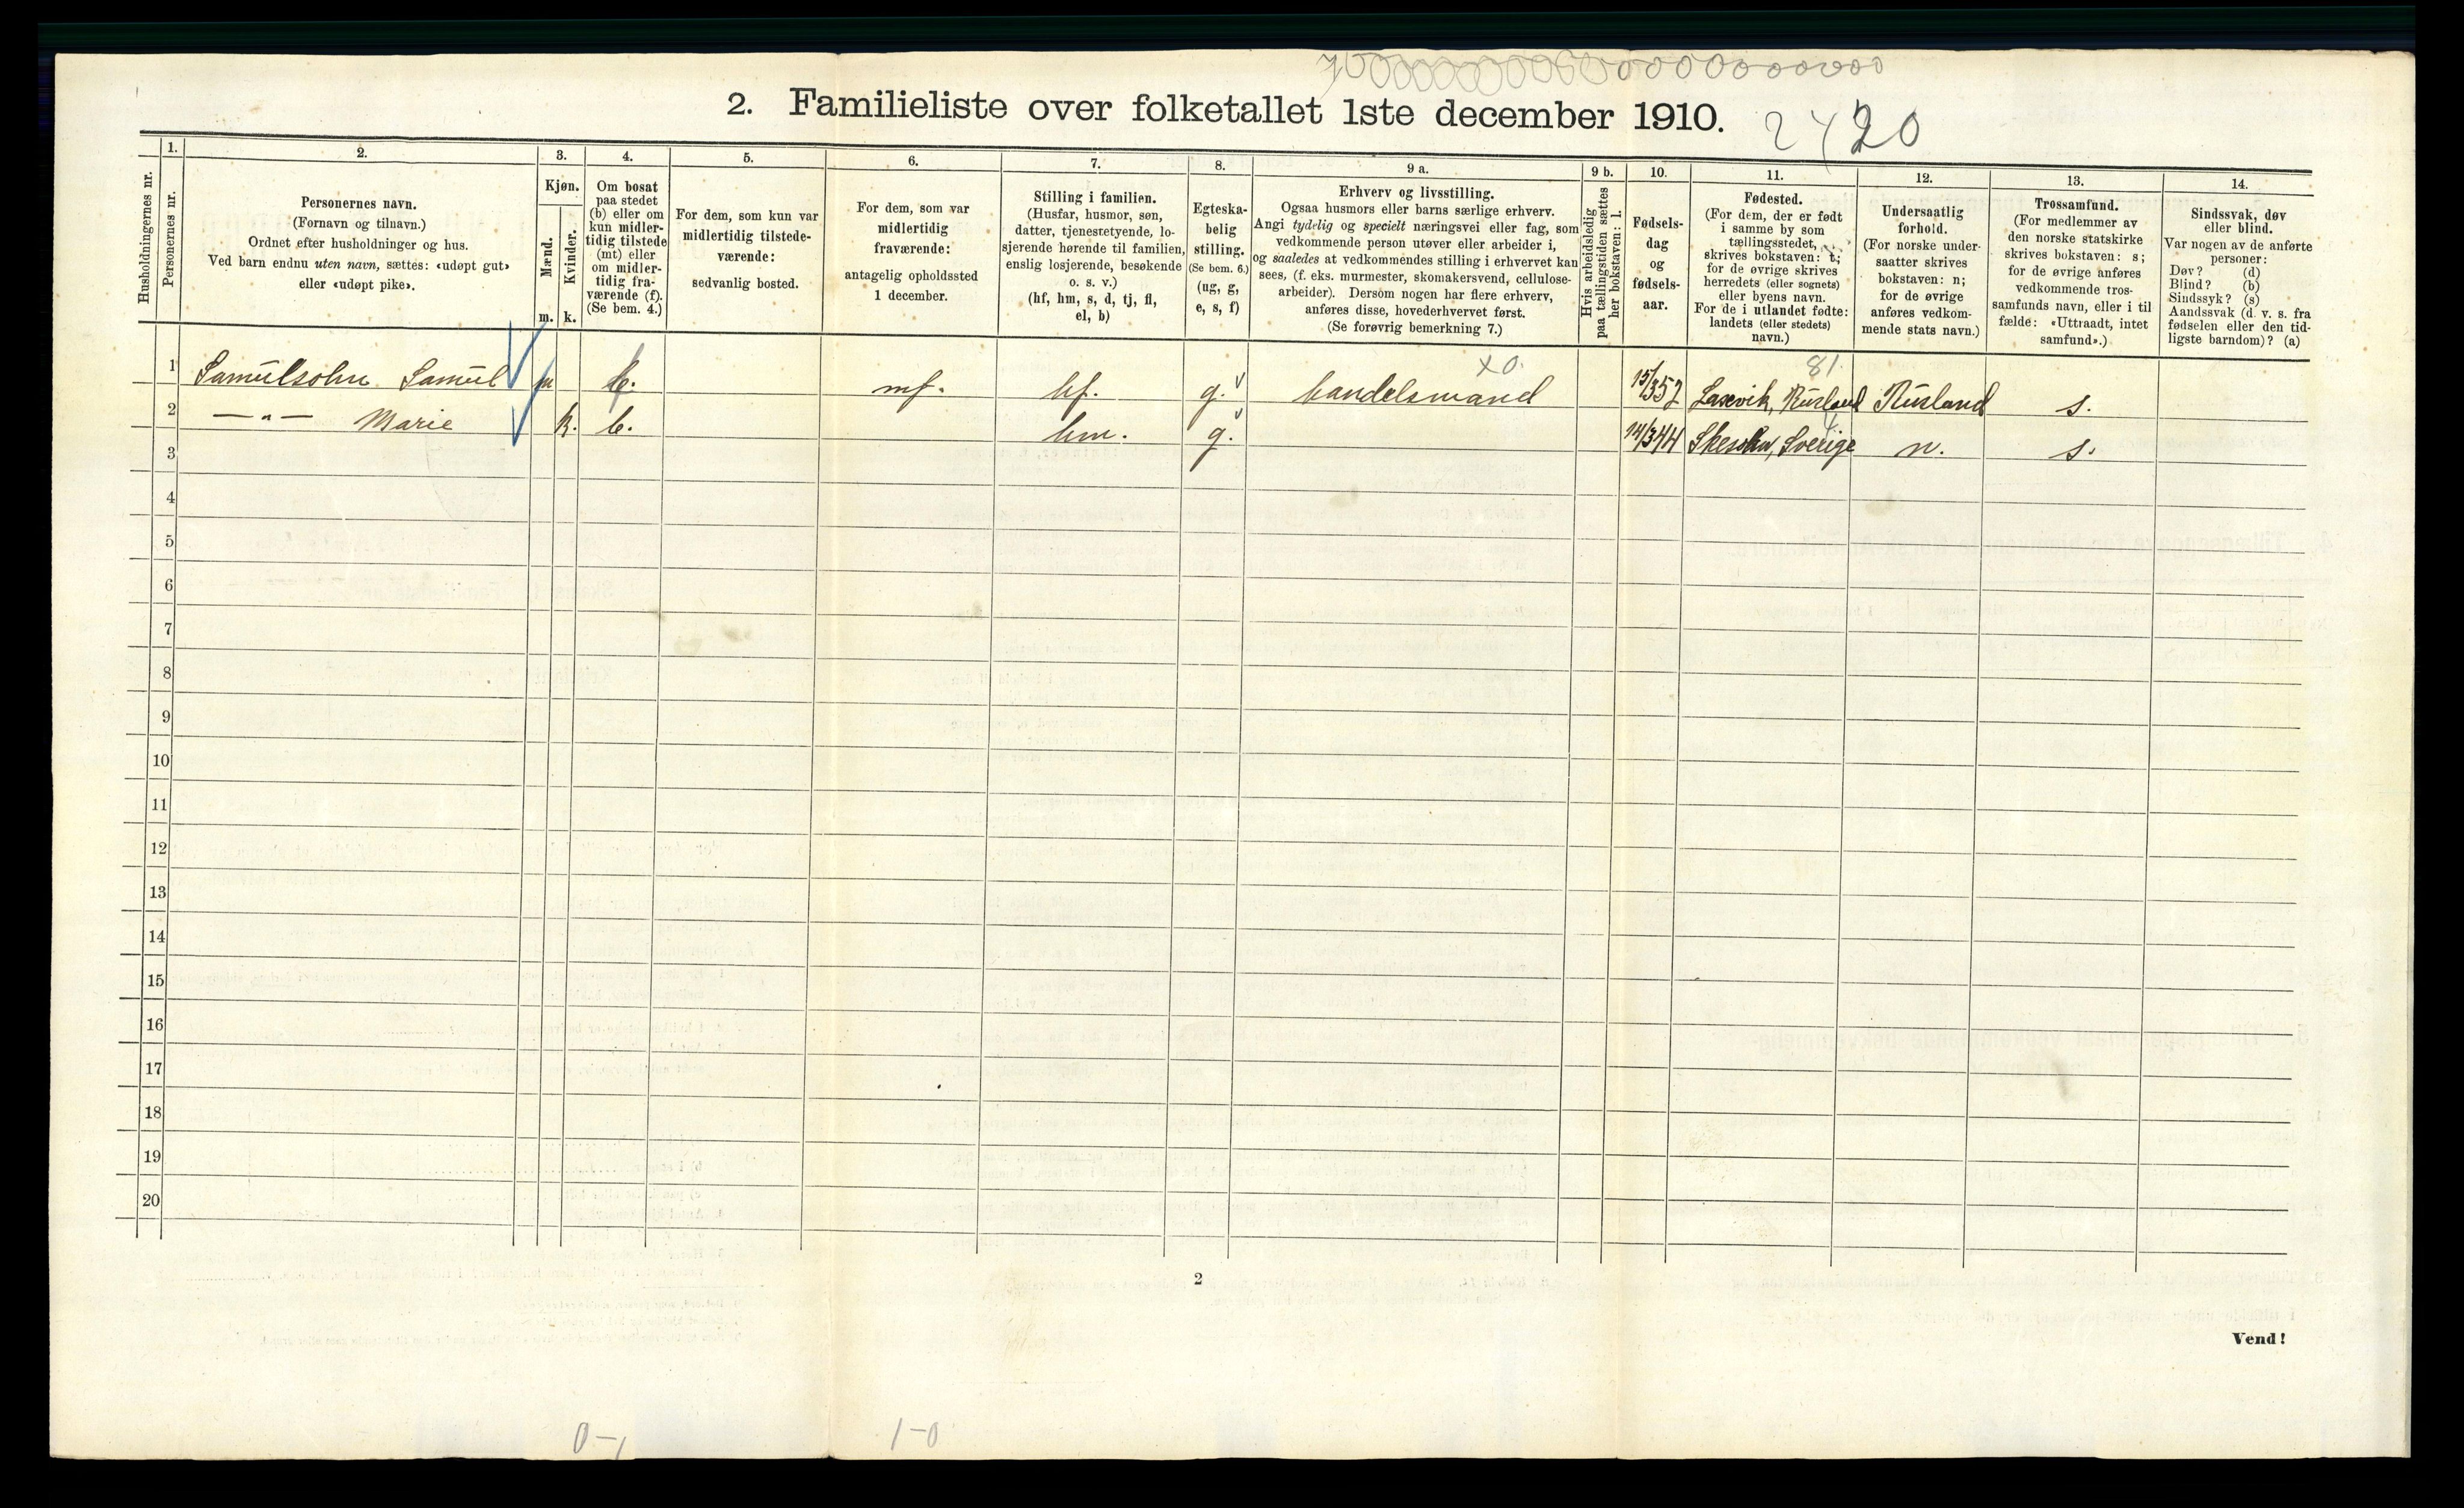 2. Familieliste over folketallet 1ste december 1910.
2420
Husholdningernes nr.
1.
Personernes nr.
2.
Personernes navn.
(Fornavn og tilnavn.)
Ordnet efter husholdninger og hus.
Ved barn endnu uten navn, sættes: «udøpt gut»
eller «udøpt pike».
3.
Kjøn.
Mænd.
Kvinder.
m. k.
4.
Om bosat
paa stedet
(b) eller om
kun midler-
tidig tilstede
(mt) eller
om midler-
tidig fra-
værende (f).
(Se bem. 4.)
5.
For dem, som kun var
midlertidig tilstede-
værende:
sedvanlig bosted.
6.
For dem, som var
midlertidig
fraværende:
antagelig opholdssted
1 december.
7.
Stilling i familien.
(Husfar, husmor, søn,
datter, tjenestetyende, lo-
sjerende hørende til familien,
enslig losjerende, besøkende
o. s. v.)
(hf, hm, s, d, tj, fl,
el, b)
8.
Egteska-
belig
stilling.
(Se bem. 6.)
(ug, g,
e, s, f)
9 a.
Erhverv og livsstilling.
Ogsaa husmors eller barns særlige erhverv.
Angi tydelig og specielt næringsvei eller fag, som
vedkommende person utøver eller arbeider i,
og saaledes at vedkommendes stilling i erhvervet kan
sees, (f. eks. murmester, skomakersvend, cellulose-
arbeider). Dersom nogen har flere erhverv,
anføres disse, hovederhvervet først.
(Se forøvrig bemerkning 7.)
9 b.
Hvis arbeidsledig
paa tællingstiden sættes
her bokstaven: l.
10.
Fødsels-
dag
og
fødsels-
aar.
11.
Fødested.
(For dem, der er født
i samme by som
tællingsstedet,
skrives bokstaven: t;
for de øvrige skrives
herredets (eller sognets)
eller byens navn.
For de i utlandet fødte:
landets (eller stedets)
navn.)
12.
Undersaatlig
forhold.
(For norske under-
saatter skrives
bokstaven: n;
for de øvrige
anføres vedkom-
mende stats navn.)
13.
Trossamfund.
(For medlemmer av
den norske statskirke
skrives bokstaven: s;
for de øvrige anføres
vedkommende tros-
samfunds navn, eller i til
fælde: «Uttraadt, intet
samfund».)
14.
Sindssvak, døv
eller blind.
Var nogen av de anførte
personer:
Døv? (d)
Blind? (b)
Sindssyk? (s)
Aandssvak (d. v. s. fra
fødselen eller den tid-
ligste barndom)? (a)
x0. 81
1 Samulsohn Samul m mf. hf. g. handelsmand 15/3 52 Rusland Rusland s.
2 —„— Marie k. b. hm. g. 14/3 44 Sverige n. s.
3
4
5
6
7
8
9
10
11
12
13
14
15
16
17
18
19
20
2
Vend!
0-1 1-0